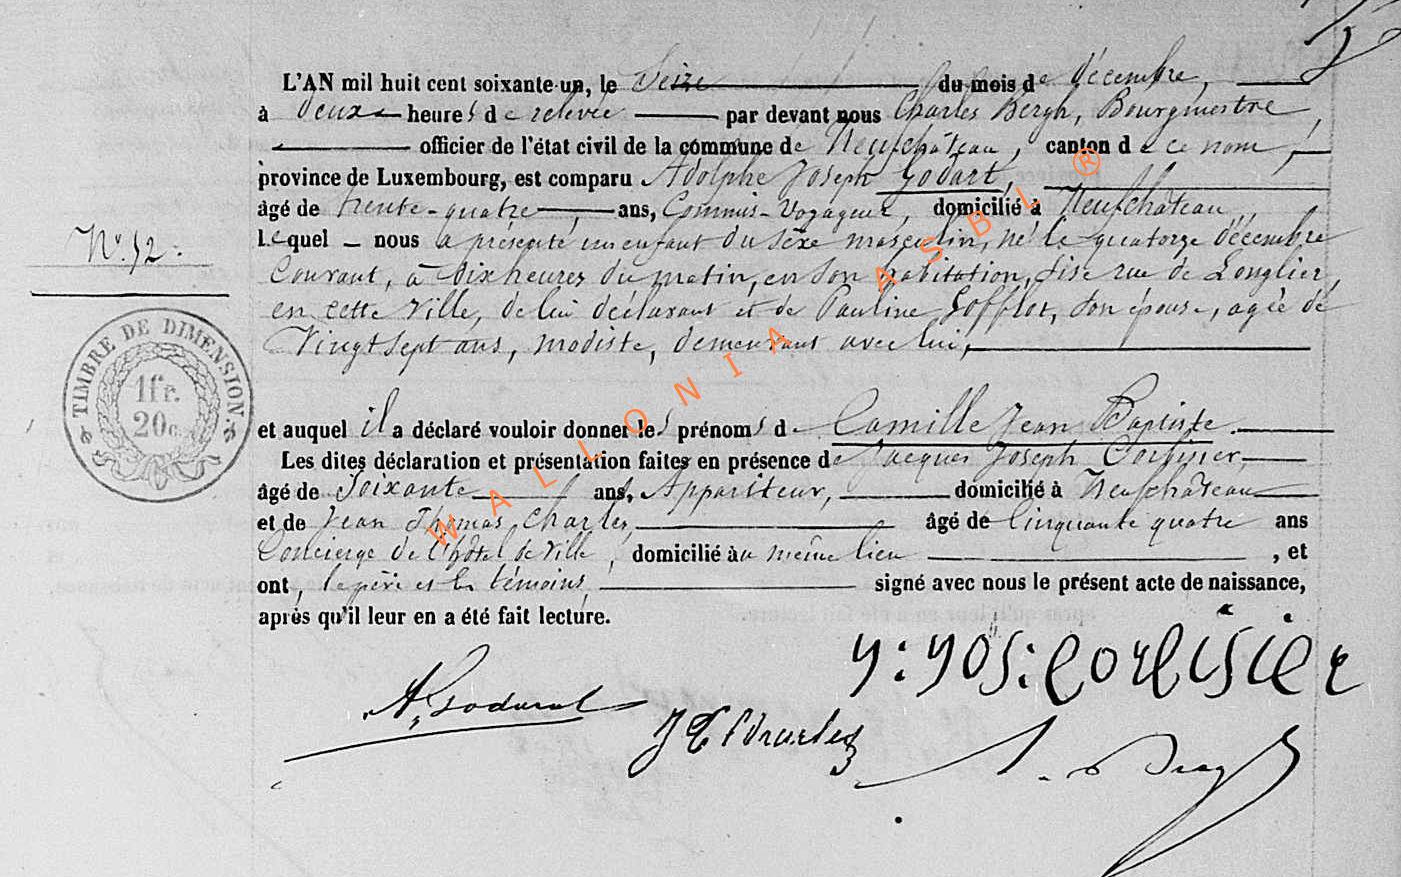 L'AN mil huit cent soixante-un, le Seize du mois de décembre,
à deux heures de relevée par devant nous Charles Bergh, Bourgmestre,
officier de l'état civil de la commune de Neufchâteau, canton de ce nom,
province de Luxembourg, est comparu Adolphe Joseph Godart,
âgé de trente-quatre ans, Commis-Voyageur, domicilié à Neufchâteau,
Lequel nous a présenté un enfant du sexe masculin, né le quatorze décembre
N° 52.
courant, à dix heures du matin, en son habitation, sise rue de Longlier,
en cette ville, de lui déclarant et de Pauline Gofflot, son épouse, agée de
Vingt sept ans, modiste, demeurant avec lui,
TIMBRE DE DIMENSION
1fr.
20c.
et auquel il a déclaré vouloir donner les prénoms de Camille Jean Baptiste.
Les dites déclaration et présentation faites en présence de Jacques Joseph Corbisier,
âgé de Soixante ans, Appariteur, domicilié à Neufchâteau
et de Jean Thomas Charles, âgé de Cinquante quatre ans
Concierge de l'hôtel de ville, domicilié au même lieu, et
ont, le père et les témoins, signé avec nous le présent acte de naissance,
après qu'il leur en a été fait lecture.
J: Jos: Corbisier
A. Godart
J T Charles
WALLONIA ASBL ®